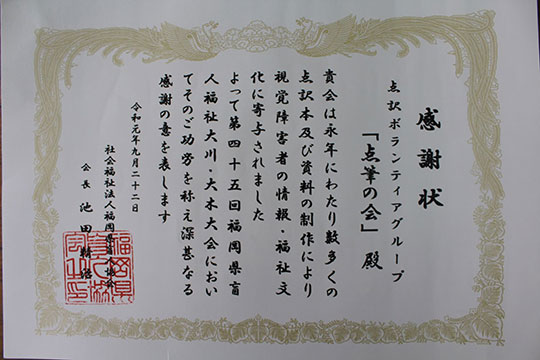 感謝状
点訳ボランティアグループ
「点筆の会」殿
貴会は永年にわたり数多くの
点訳本及び資料の制作により
視覚障害者の情報・福祉文
化に寄与されました
よって第四十五回福岡県盲
人福祉大川・大木大会におい
てそのご功労を称え深甚なる
感謝の意を表します
令和元年九月二十二日
社会福祉法人福岡県盲人協会
会長 池田精治